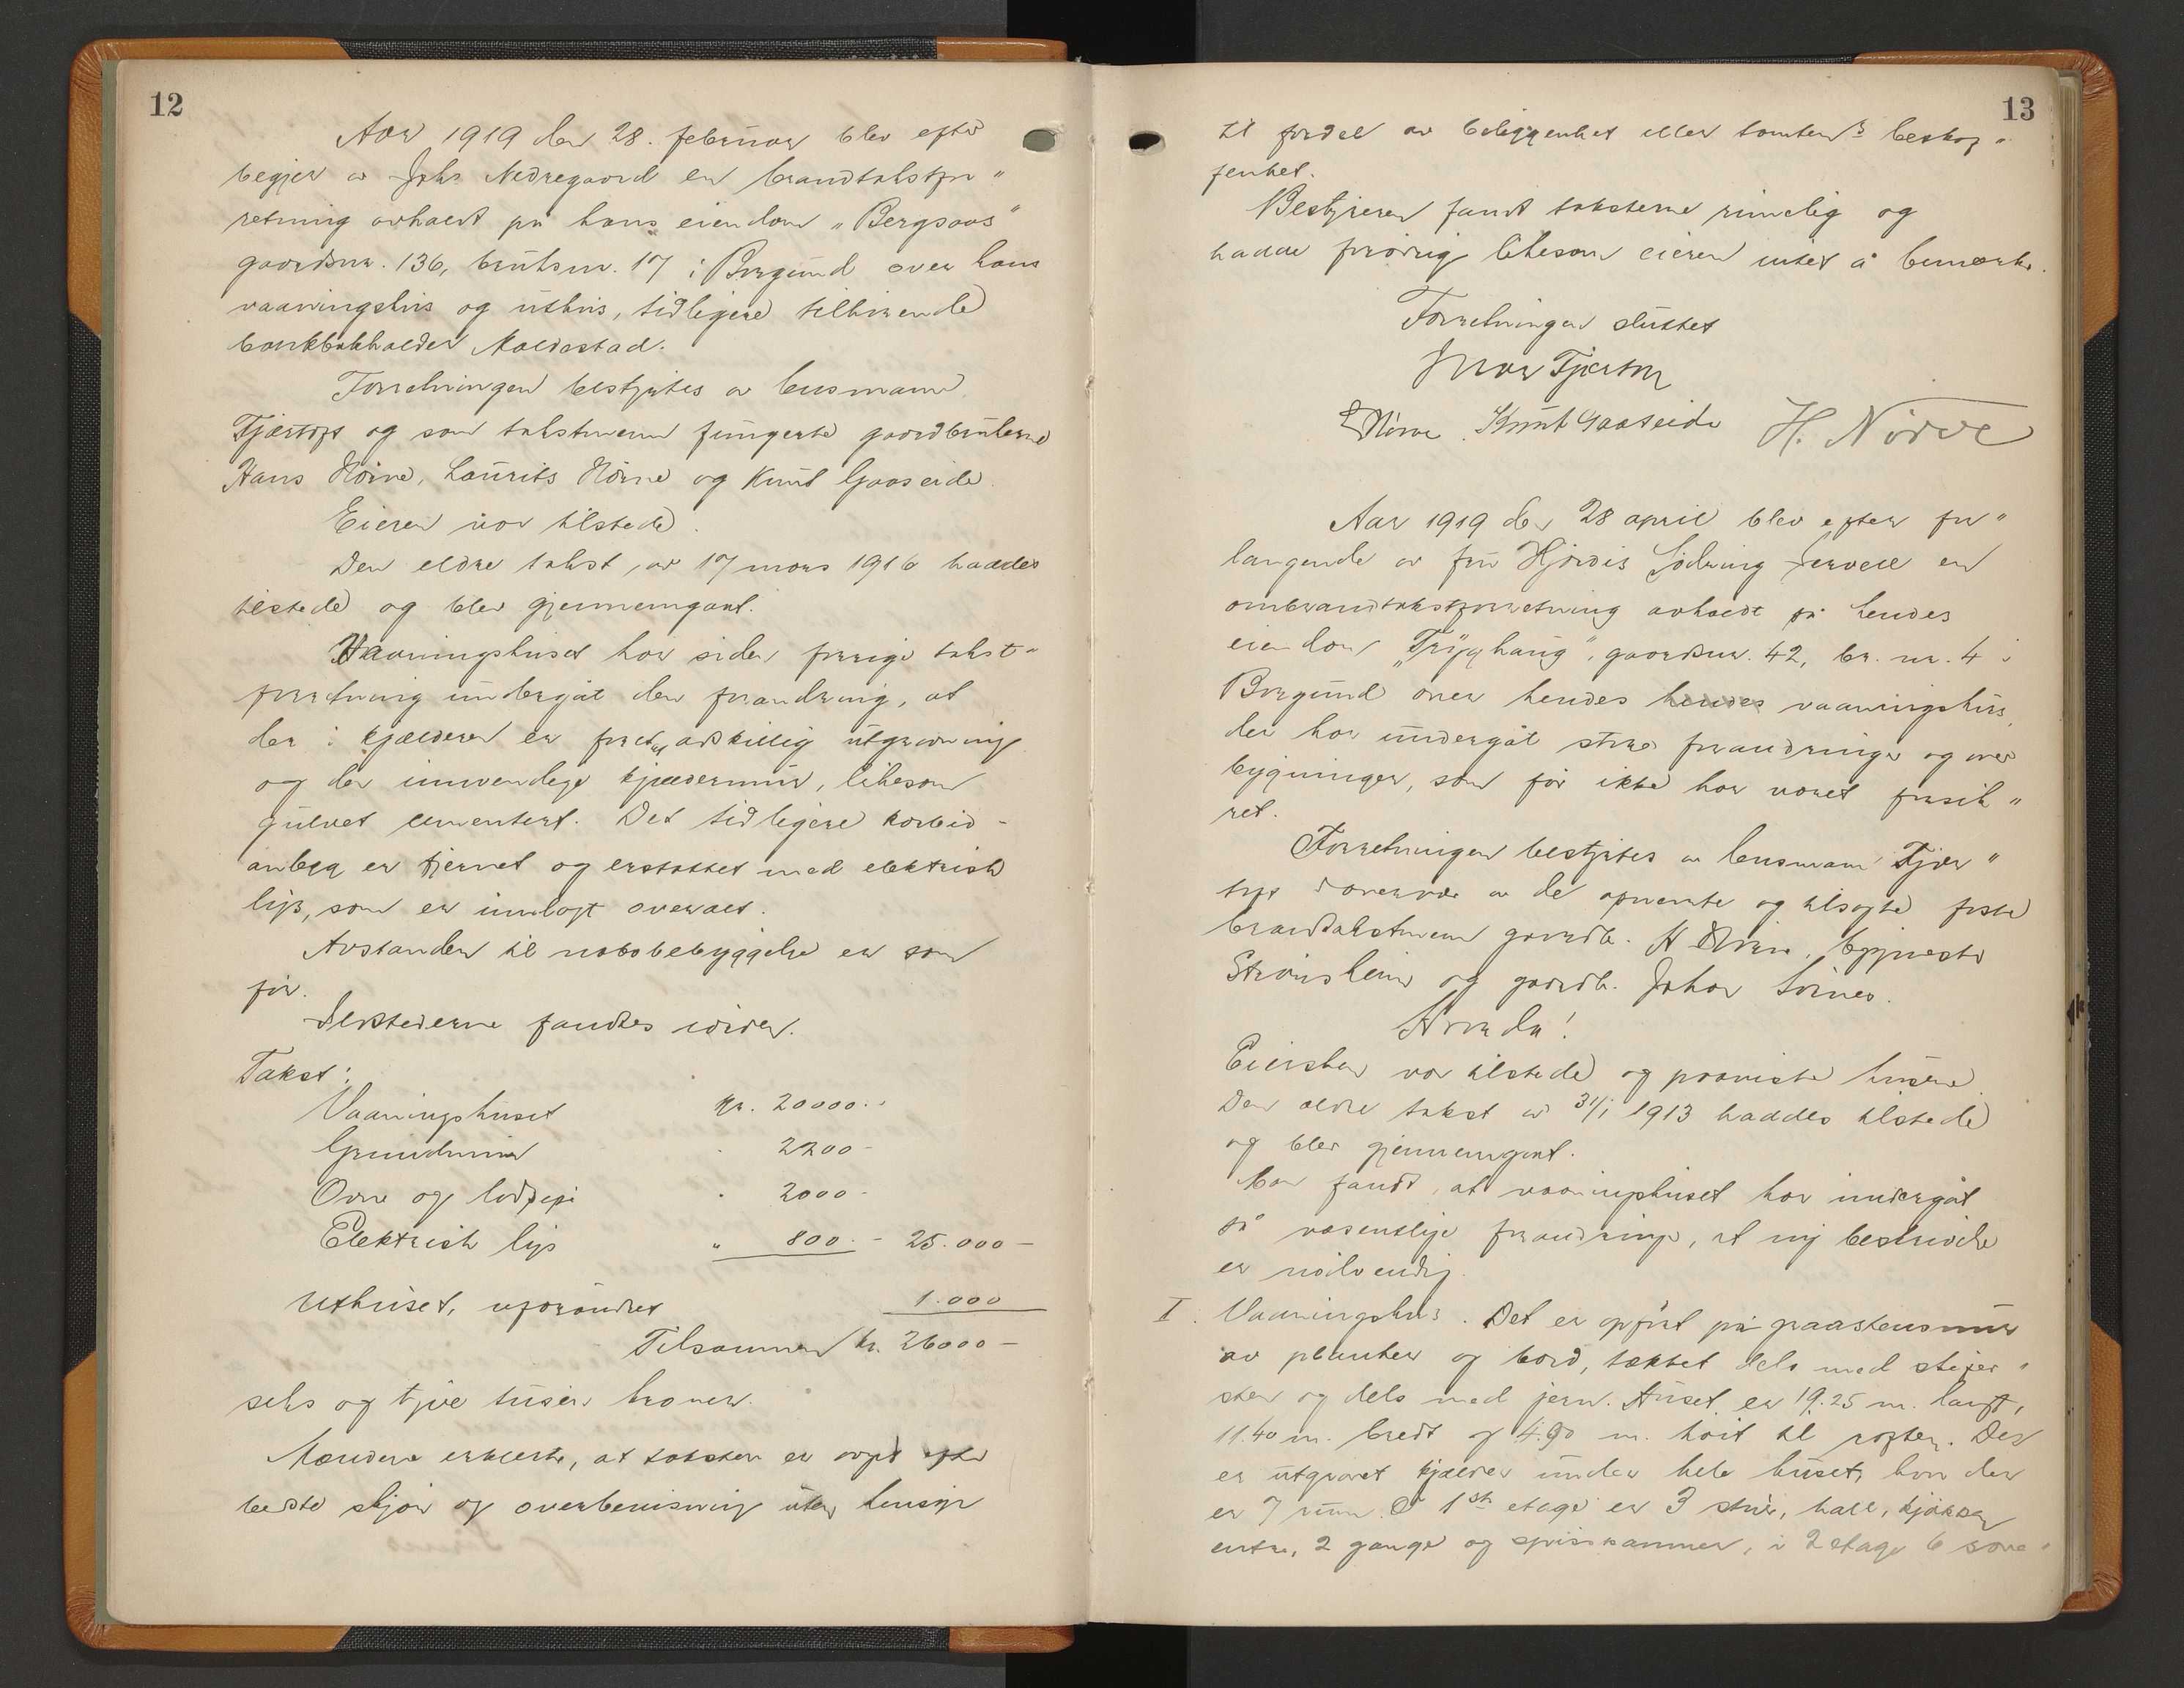 12
Aar 1919 den 28. februar blev efter
begjær av Johs Nedregaard en brandtakstfor„
retning avholdt på hans eiendom „Bergsaas“
gaardsnr. 136, bruksnr. 17 i Borgund over hans
vaaningshus og uthus, tidligere tilhørende
bankbokholder Maldestad.
Forretningen bestyrtes av lensmand
Fjørtoft og som takstmenn fungerte gaardbrukerne
Hans Nørve, Laurits Nørve og Knut Gaaseide.
Eieren var tilstede.
Den eldre takst, av 17 mars 1916 haddes
tilstede og blev gjennemgaat.
Vaaningshuset har siden forrige takst-
forretning undergåt den forandring, at
der i kjælderen er foretat adskillig utgravning
og den innvendige kjældermur, likesom
gulvet cementert. Det tidligere karbid-
anlegg er fjernet og erstattet med elektrisk
lys, som er innlagt overalt.
Avstanden til nabobebyggelse er som
før.
Ildstederne fandtes iorden.
Takst:
Vaaningshuset kr. 20000.-
Grundmur " 2200 -
Ovne og ledninger " 2000 -
Elektrisk lys " 800. - 25.000 -
Uthuset, uforandret 1.000
Tilsammen kr. 26000 -
seks og tyve tusen kroner.
Mændene erklærte, at taksten er avgit efter
bedste skjøn og overbevisning uten hensyn
13
til fordel av beliggenhet eller tomtens beskaf„
fenhet.
Bestyreren fandt taksterne rimelig og
hadde forøvrig likesom eieren intet å bemerke.
Forretningen sluttet
Ivar Fjørtoft
L Nørve Knut Gaaseide H. Nørve
Aar 1919 den 28 april blev efter for„
langende av fru Hjørdis Sødring Jervell en
ombrandtakstforretning avholdt på hendes
eiendom „Trygghaug“, gaardsnr. 42, br. nr. 4 i
Borgund over hendes hendes vaaningshus,
der har undergåt store forandringer og over
bygninger, som før ikke har været forsik„
ret.
Forretningen bestyrtes av lensmann Fjør„
toft i overvær av de opnævnte og tilsagte faste
brandtakstmenn gaardb. H Nørve, byggmester
Strømsheim og gaardb. Johan Sørnes.
Hvorda!
Eiersken var tilstede og paaviste husene
Den ældre takst av 31/1 1913 haddes tilstede
og blev gjennemgaat.
Man fandt, at vaaningshuset har undergåt
så væsentlige forandringer, at ny beskrivelse
er nødvendig.
I. Vaaningshus. Det er opført på graastensmur
av planker og bord, tækket dels med skifer„
sten og dels med jern. Huset er 19.25 m. langt,
11.40 m. bredt og 4.90 m. høit til røsten. Der
er utgravet kjælder under hele huset, hvor der
er 7 rum. I 1ste etage er 3 stuer, hall, kjøkken
entre, 2 gange og spiskammer, i 2 etage 6 sove„